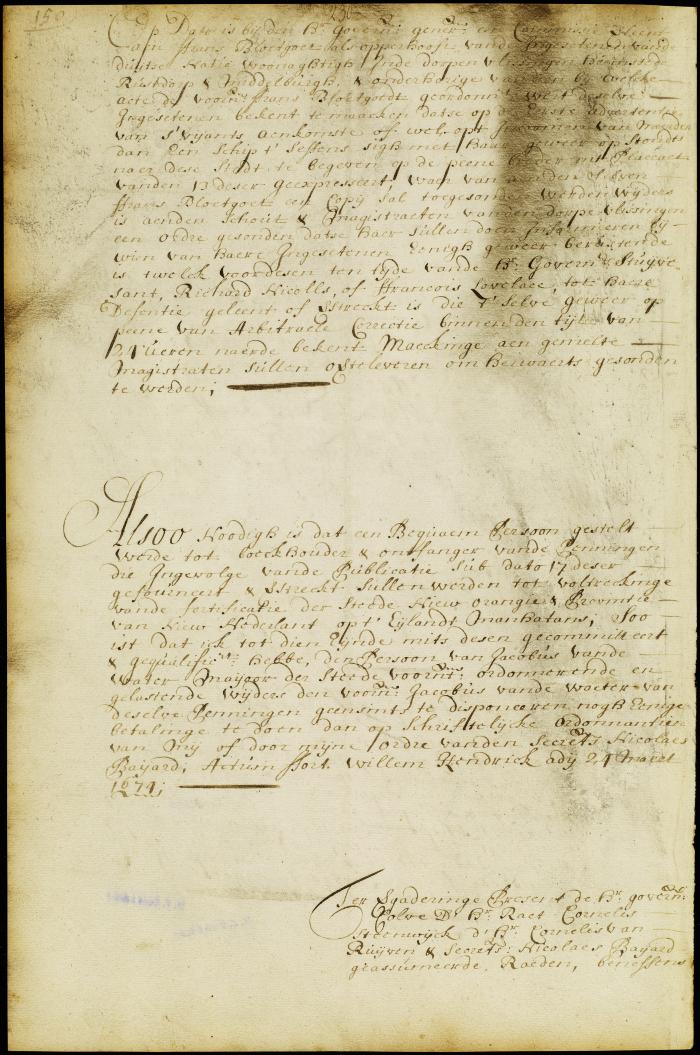 150
230
Op Dato is bij den Hr. Govern: gener: een Commissie
aen ffrans Bloetgoet als opperhooft vande Ingesetenen vande
duitse Natie woonaghtigh inde dorpen vlissingen heemstede
Rustdorp & Middelburgh, & onderhorige
acte de voorn: ffrans Bloetgoedt geordonn: wert deselve
Ingesetenen bekent te maacken datse op de Eerste advertentie
van s'vijants aenkomste of wel opt vernemen van meerder
dan Een Schip t'seffens sigh met haar geweer op Stondt
naer dese Stadt te begeven op de peene bij der mit Placcaet
vanden 13 deser geexpresseert, waer van aenden selven
ffrans Bloetgoet een Copij sal toegesonden werden wijders
is aenden schout & Magistraeten vanden dorpe vlissingen
een ordre gesonden datse haer sullen doen Inquireren bij
wien van haere Ingesetenen Eenigh geweer berustende
is twelck voordesen ten tijde vande Hr. Govern: Stuijve-
sant, Richard Nicolls, of ffrancois Lovelace, tot haere
Defentie geleent of Streckt is die t'selve geweer op
peene van Arbitraele Correctie binnen den tijt van
24 Ueren naerde bekent Maeckinge aen gemelte
Magistraten sullen opteleveren om herwaerts gesonden
te werden;
Alsoo Noodigh is dat een Bequaem Persoon gestelt
werde tot boeckhouder & ontfanger vande Penningen
die Ingevolge vande Publicatie sub dato 17 deser
gefourneert & Streckt sullen werden tot voltreckinge
vande fortificatie der Steede Nieuw orangie & Provintie
van Nieuw Nederlant op t' Eijlandt Manhatans; Soo
ist dat ick tot dien Eijnde mits desen gecommitteert
& gequalific: hebbe, den Persoon van Jacobus vande
Water Maijoor der Steede voorn: ordonnerende en
gelastende wijders den voorn: Jacobus vande Waeter van
deselve Penningen geensints te disponeeren nogh Eenige
betalinge te doen dan op Schriftelijcke ordonnantien
van Mij of door mijne ordre vanden Secrets Nicolaes
Bayard; Actum ffort Willem Hendrick adij 24 Maert
1674;
Ter Vgaderinge Present de Hr. govern:
Colve D' Hr. Raet Cornelis
Steenwijck d' Hr. Cornelis van
Ruijven & Secrets: Nicolaes Bayard
geassumeerde Raeden, beneffens